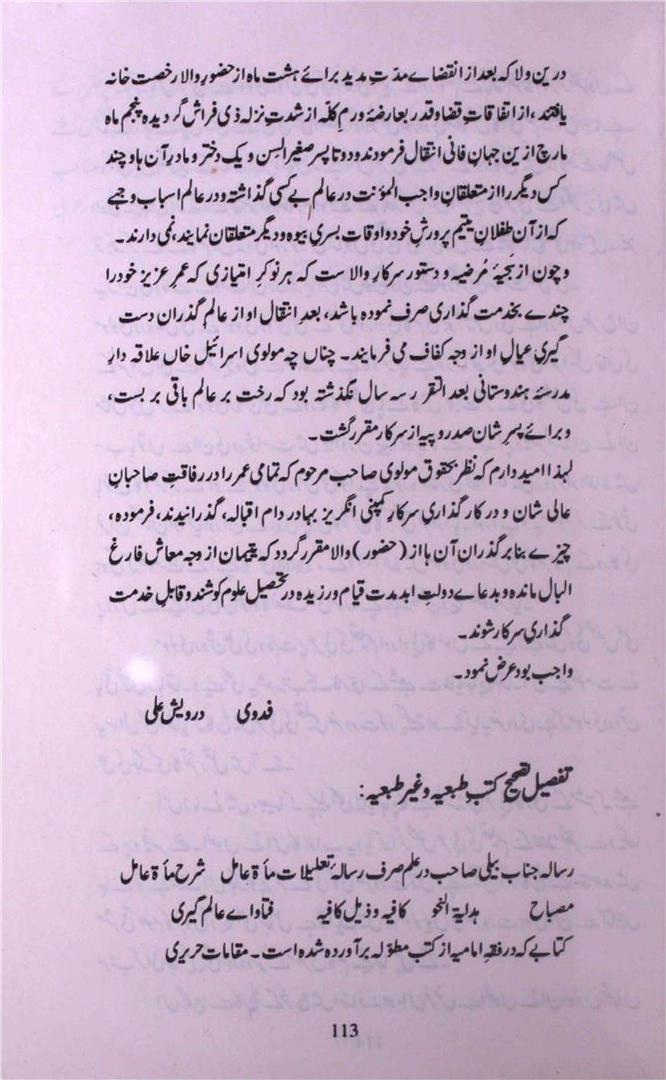 درین ولا کہ بعد از انقضاے مدتِ مدید براے ہشت ماہ از حضورِ والا رخصت خانہ
یافتند، از اتفاقاتِ قضا و قدر بعارضۂ ورم کلّہ از شدتِ نزلہ ذی فراش گردیدہ پنجم ماہ
مارچ ازین جہانِ فانی انتقال فرمودند و دو تا پسر صغیر السن و یک دختر و مادرِ آن با و چند
کس دیگر را از متعلقانِ واجب المؤنت در عالم بے کسی گذاشتہ و در عالم اسباب وجہے
کہ از آن طفلانِ یتیم پرورشِ خود و اوقات بسریِ بیوہ و دیگر متعلقان نمایند نمی دارند۔
و چون از سجیۂ مرضیہ و دستور سرکارِ والا ست کہ ہر نوکر امتیازی کہ عمرِ عزیز خود را
چندے بخدمت گذاری صرف نمودہ باشد، بعدِ انتقالِ او از عالم گذران دست
گیری عیالِ او از وجہِ کفاف می فرمایند۔ چناں چہ مولوی اسرائیل خاں علاقہ دار
مدرسۂ ہندوستانی بعد التقرر سہ سال نگذشتہ بود کہ رخت بر عالم باقی بر بست،
و براے پسرِ شان صد روپیہ از سرکار مقرر گشت۔
لہذا امید دارم کہ نظر بحقوقِ مولوی صاحب مرحوم کہ تمامی عمر را در رفاقت صاحبانِ
عالی شان و در کار گذاری سرکار کمپنی انگریز بہادر دام اقبالہ، گذرانیدند، فرمودہ،
چیزے بنا بر گذران آن ہا از (حضور) والا مقرر گردد کہ یتیمان از وجہ معاش فارغ
البال ماندہ و بدعاے دولتِ ابد مدت قیام ورزیدہ در تحصیلِ علوم کوشند و قابلِ خدمت
گذاری سرکار شوند۔
واجب بود عرض نمود۔
فدوی درویش علی
تفصیل تصحیح کتب طبعیہ و غیر طبعیہ:
رسالہ جناب بیلی صاحب در علم صرف رسالۂ تعلیلات مأۃ عامل شرح مأۃ عامل
مصباح ہدایۃ النحو کافیہ و ذیل کافیہ فتاداے عالم گیری
کتابے کہ در فقہِ امامیہ از کتب مطولہ بر آوردہ شدہ است۔ مقامات حریری
113